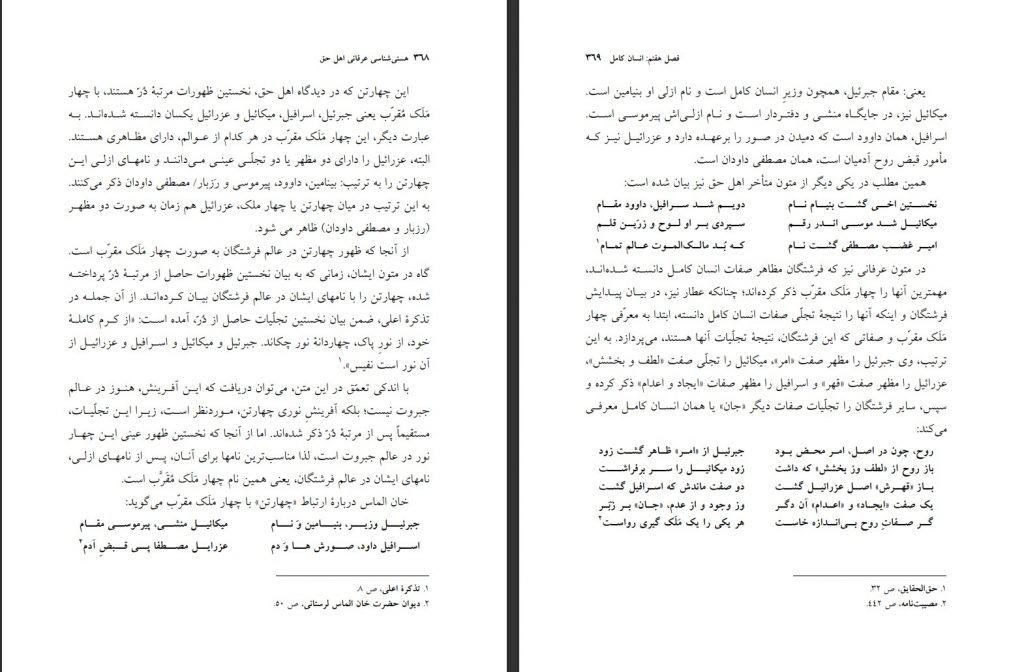 ۳۶۸ هستی‌شناسی عرفانی اهل حق
این چهارتن که در دیدگاه اهل حق، نخستین ظهورات مرتبهٔ دُرّ هستند، با چهار
مَلَک مُقرّب یعنی جبرئیل، اسرافیل، میکائیل و عزرائیل یکسان دانسته شده‌اند. به
عبارت دیگر، این چهار مَلَک مقرّب در هر کدام از عوالم، دارای مظاهری هستند.
البته، عزرائیل را دارای دو مظهر یا دو تجلّی عینی می‌داننـد و نامهای ازلی ایـن
چهارتن را به ترتیب: بینامین، داوود، پیرموسی و رَزبار/ مصطفی داودان ذکر می‌کنند.
به این ترتیب در میان چهارتن یا چهار ملک، عزرائیل هم زمان به صورت دو مظهـر
(رزبار و مصطفی داودان) ظاهر می شود.
از آنجا که ظهور چهارتن در عالم فرشتگان به صورت چهار مَلَک مقرّب است.
گاه در متون ایشان، زمانی که به بیان نخستین ظهورات حاصل از مرتبهٔ دُرّ پرداختـه
شده، چهارتن را با نامهای ایشان در عالم فرشتگان بیان کـرده‌انـد. از آن جملـه در
تذکرهٔ اعلی، ضمن بیان نخستین تجلّیات حاصل از دُرّ، آمده است: «از کـرم کاملـهٔ
خود، از نورِ پاک، چهاردانهٔ نور چکاند. جبرئیل و میکائیل و اسرافیل و عزرائیـل از
آن نور است نفیس».۱
با اندکی تعمّق در این متن، می‌توان دریافت که ایـن آفـرینش، هنـوز در عالـم
جبروت نیست؛ بلکه آفرینشِ نوری چهارتن، مـوردنظر اسـت، زیـرا ایـن تجلّیـات،
مستقیماً پس از مرتبهٔ دُرّ ذکر شده‌اند. اما از آنجا که نخستین ظهور عینی ایـن چهـار
نور در عالم جبروت است، لذا مناسب‌ترین نامها برای آنـان، پـس از نامهـای ازلـی،
نامهای ایشان در عالم فرشتگان، یعنی همین نام چهار مَلَک مُقَرَّب است.
خان الماس دربارهٔ ارتباط «چهارتن» با چهار مَلَک مقرّب می‌گوید:
جبرئیـل وزیـر، بنیـامین وَ نـام میکائیـل منشـی، پیرموسـی مقـام
اسـرافیل داود، صـورش هـا وَ دم عزرایـل مصـطفا پـی قـبضِ آدم۲
۱. تذکرهٔ اعلی، ص ۸.
۲. دیوان حضرت خان الماس لرستانی، ص ۵۰.
فصل هفتم: انسان کامل ۳۶۹
یعنی: مقام جبرئیل، همچون وزیرِ انسان کامل است و نام ازلی او بنیامین است.
میکائیل نیز، در جایگاه منشی و دفتـردار است و نـام ازلی‌اش پیرموسـی است.
اسرافیل، همان داوود است که دمیدن در صور را برعهده دارد و عزرائیـل نیـز کـه
مأمور قبض روح آدمیان است، همان مصطفی داودان است.
همین مطلب در یکی دیگر از متون متأخر اهل حق نیز بیان شده است:
نخسـتین اخـی گشـت بنیـام نـام دویـم شـد سـرافیل، داوود مقـام
میکائیـل شـد موسـی انـدر رقـم سـپردی بـر او لـوح و زرّیـن قلـم
امیـر غضـب مصـطفی گشـت نـام کـه بُـد مالـک‌المـوت عـالم تمـام۱
در متون عرفانی نیز که فرشتگان مظاهر صفات انسان کامـل دانسـته شـده‌انـد،
مهمترین آنها را چهار مَلَک مقرب ذکر کرده‌اند؛ چنانکه عطار نیز، در بیـان پیـدایش
فرشتگان و اینکه آنها را نتیجهٔ تجلّی صفات انسان کامل دانسته، ابتدا به معرّفی چهار
مَلَک مقرّب و صفاتی که این فرشتگان، نتیجهٔ تجلّیات آنها هستند، می‌پردازد. به این
ترتیب، وی جبرئیل را مظهر صفت «امر»، میکائیل را تجلّی صفت «لطف و بخشش»،
عزرائیل را مظهر صفت «قهر» و اسرافیل را مظهر صفات «ایجاد و اعدام» ذکر کرده و
سپس، سایر فرشتگان را تجلّیات صفات دیگر «جان» یا همان انسان کامـل معرفـی
می‌کند:
روح، چون در اصل، امر محـض بـود جبرئیل از «امـر» ظـاهر گشـت زود
باز روح از «لطف وز بخشش» که داشت زود میکائیـل را سـر برفراشـت
بـاز «قهـرش» اصـل عزرائیـل گشـت دو صفت ماندش که اسرافیل گشت
یک صفت «ایجاد» و «اعدام» آن دگـر وز وجود و از عدم، «جـان» بـر زَبَـر
گـر صـفاتِ روح بـی‌انـدازه خاسـت هر یکی را یک مَلَک گیری رواسـت۲
۱. حق‌الحقایق، ص ۳۲.
۲. مصیبت‌نامه، ص ۴۴۲.